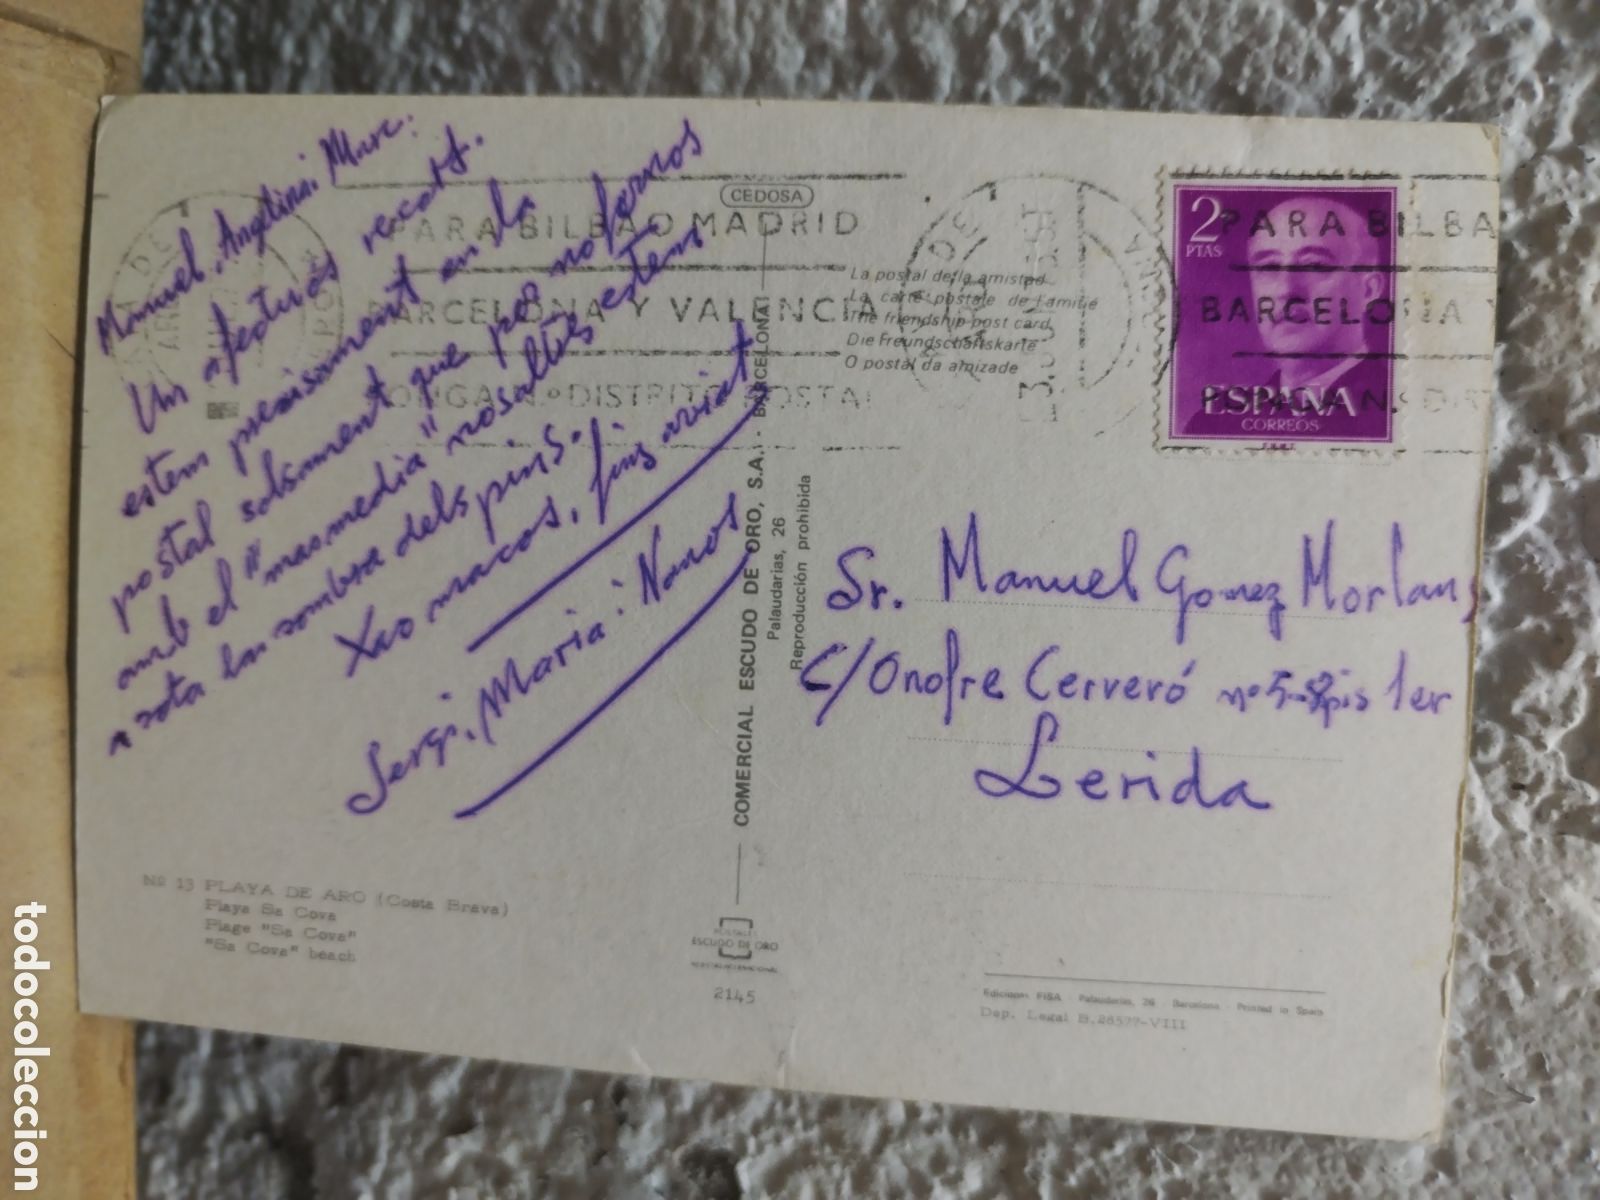 Manuel, Angelina i Marc:
Un afectuós recort.
estem precisament en la
postal solsament que per no fernos
amb el "mas media" nosaltres estem
a sota la sombra dels pins.
Xao macos, fins aviat
Sergi, Maria i Nanos
CEDOSA
PARA BILBAO MADRID
BARCELONA Y VALENCIA
PONGA N.º DISTRITO POSTAL
La postal de la amistad
La carte postale de l'amitié
The friendship post card
Die Freundschaftskarte
O postal da amizade
2 PTAS
ESPAÑA
CORREOS
F.N.M.T.
PARA BILBA
BARCELONA Y
PONGA N.º DIST
COMERCIAL ESCUDO DE ORO, S.A. - BARCELONA
Palaudarias, 26
Reproducción prohibida
Sr. Manuel Gomez Morlans
C/ Onofre Cerveró nº 5-8 pis 1er
Lerida
Nº 13 PLAYA DE ARO (Costa Brava)
Playa Sa Cova
Plage "Sa Cova"
"Sa Cova" beach
POSTALES
ESCUDO DE ORO
2145
Ediciones FISA - Palaudarias, 26 - Barcelona - Printed in Spain
Dep. Legal B. 28577-VIII
todocoleccion